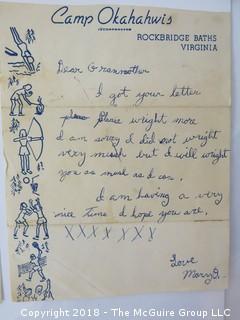 Camp Okahahwis
INCORPORATED
ROCKBRIDGE BATHS
VIRGINIA
Dear Granmother
I got your letter
please please wright more
I am sorry I did not wright
very mush but I will wright
you as mush as I can.
I am having a very
nice time I hope you are.
X X X X X X X
Love
Mary
Copyright 2018 - The McGuire Group LLC